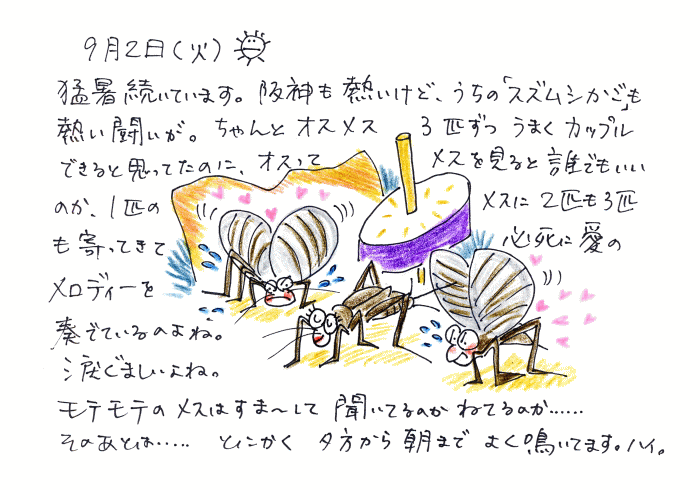 9月2日(火)
猛暑続いています。阪神も熱いけど、うちの「スズムシかご」も
熱い闘いが。ちゃんとオスメス 3匹ずつ うまくカップル
できると思ってたのに、オスって メスを見ると誰でもいい
のか、1匹の メスに 2匹も3匹
も寄ってきて 必死に愛の
メロディーを
奏でているのよね。
涙ぐましいよね。
モテモテのメスはすま〜して 聞いてるのか ねてるのか……
そのあとは…… とにかく 夕方から朝まで よく鳴いてます。ハイ。